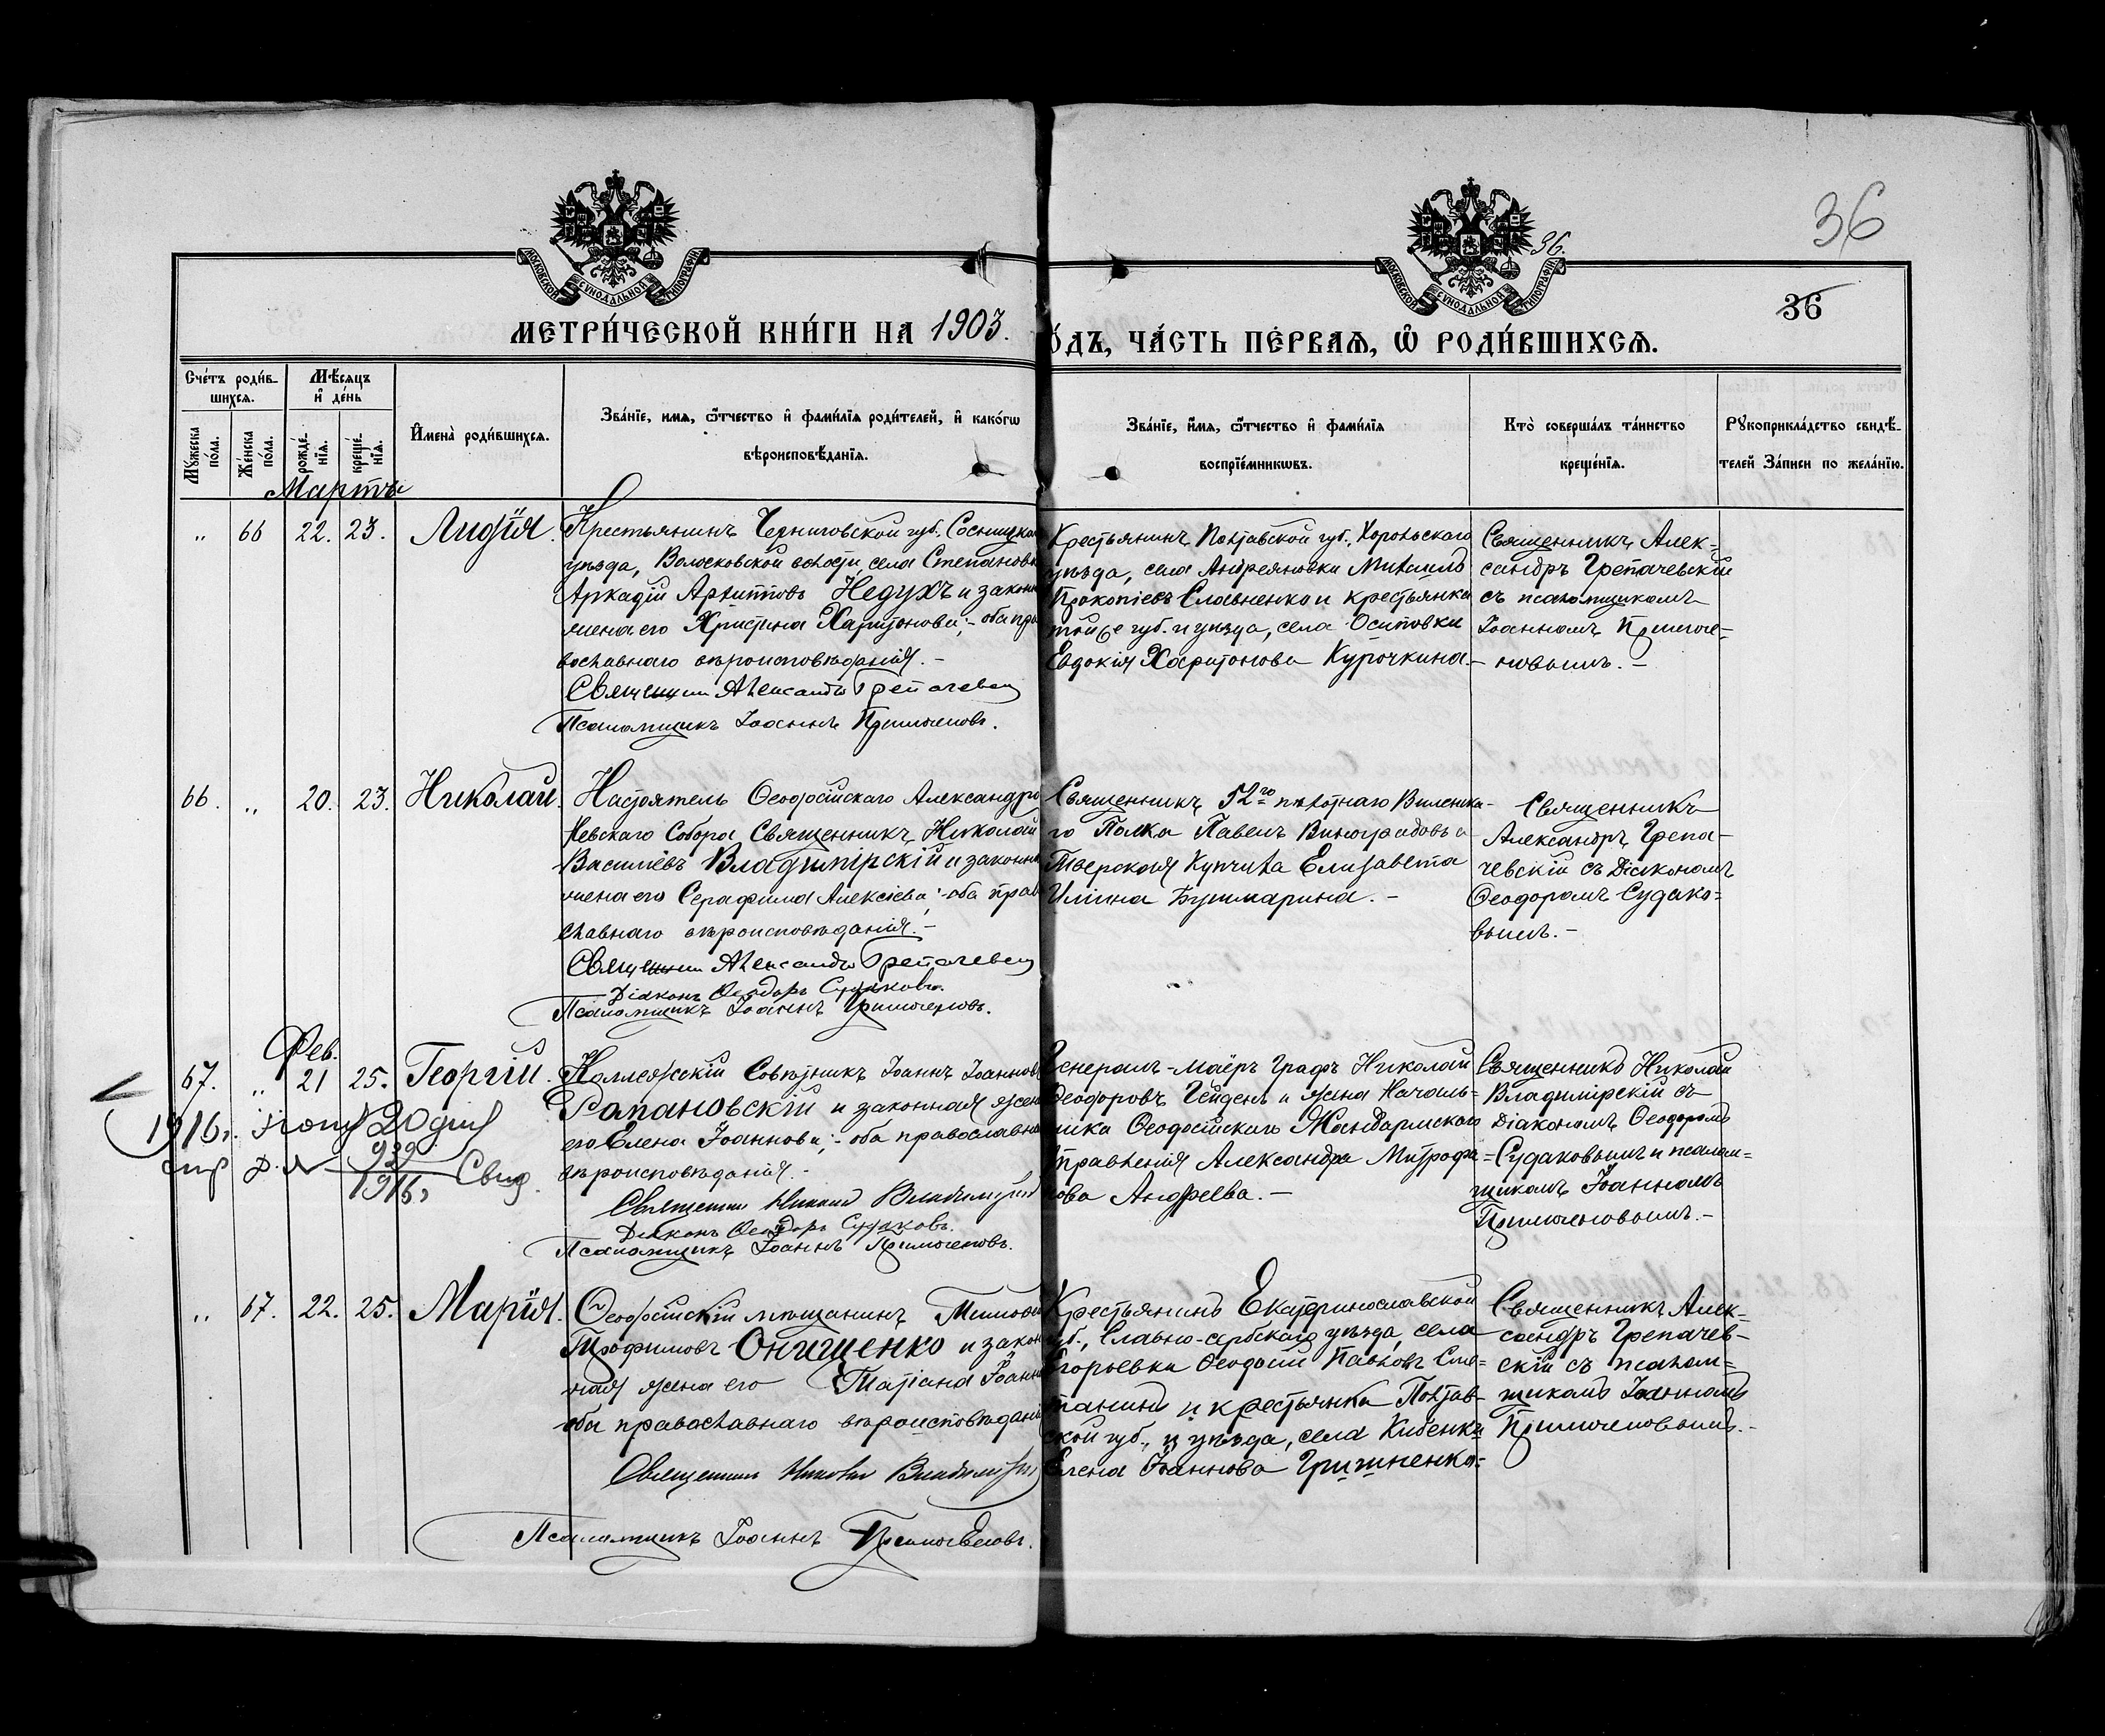 36
36.
МОСКОВСКОЙ СѴНОДАЛЬНОЙ ТИПОГРАФІИ
МОСКОВСКОЙ СѴНОДАЛЬНОЙ ТИПОГРАФІИ
36
МЕТРИ́ЧЕСКОЙ КНИ́ГИ НА 1903.
О́ДЪ, ЧА́СТЬ ПЕ́РВАѦ, Ѽ РОДИ́ВШИХСѦ.
Сче́тъ роди́в-
шихсѧ.
Мꙋ́жеска по́ла.
Же́нска по́ла.
Мѣ́сѧцъ
и҆ де́нь
рожде́-
нїѧ.
креще́-
нїѧ.
И҆мена̀ роди́вшихсѧ.
Зва́нїе, имѧ, ѻ҆́тчество и҆ фами́лїѧ роди́телей, и҆ како́гѡ
вѣроисповѣ́данїѧ.
Зва́нїе, и҆́мѧ, ѻ҆́тчество и҆ фами́лїѧ
воспрїе́мникѡвъ.
Кто̀ соверша́лъ та́инство
креще́нїѧ.
Рꙋкоприкла́дство свидѣ́-
телей За́писи по жела́нїю.
Мартъ
„ 66 22. 23. Лидія
Крестьянинъ Черниговской губ., Сосницка
уѣзда, Волосковской волости, села Степановки
Аркадій Архиповъ Недухъ и законн
жена его Христина Харитонова; – оба пра
вославнаго вѣроисповѣданія. –
Священник Александр Грепачевск
Псаломщикъ Іоаннъ Примоченовъ.
Крестьянинъ Полтавской губ., Хорольскаго
уѣзда, села Андреяновки Михаилъ
Прокопіевъ Славненко и крестьянка
той же губ. и уѣзда, села Осиповки
Евдокія Харитонова Курочкина. –
Священникъ Алек=
сандръ Грепачевскій
съ псаломщикомъ
Іоанномъ Примоче=
новымъ. –
66. „ 20. 23. Николай.
Настоятель Ѳеодосійскаго Александро
Невскаго Собора Священникъ Николай
Василіевъ Владимірскій и законна
жена его Серафима Алексіева; – оба прав
славнаго вѣроисповѣданія. –
Священник Александр Грепачевск
Діаконъ Ѳеодоръ Судаковъ.
Псаломщикъ Іоаннъ Примоченовъ.
Священникъ 52го пѣхотнаго Виленска-
го Полка Павелъ Виноградовъ и
Тверская Купчиха Елизавета
Иліина Бушмарина. –
Священникъ
Александръ Грепа-
чевскій съ Діакономъ
Ѳеодоромъ Судако=
вымъ. –
Фев.
67. „ 21 25. Георгій.
1916г. Іюня 20 дня
Д. № 939/1916г Свид.
Коллежскій Совѣтникъ Іоаннъ Іоаннов
и законная жен
его Елена Іоаннова; – оба православна
вѣроисповѣданія. –
Священник Николай Владимірскій
Діаконъ Ѳеодоръ Судаковъ.
Псаломщикъ Іоаннъ Примоченовъ.
Генералъ-Маіоръ Графъ Николай
Ѳеодоровъ Гейденъ и жена Началь=
ника Ѳеодосійскаго Жандармскаго
Управленія Александра Митрофа=
нова Андреева. –
Священникъ Николай
Владимірскій съ
Діакономъ Ѳеодоромъ
Судаковымъ и псалом=
щикомъ Іоанномъ
Примоченовымъ. –
„ 67. 22. 25. Марія.
Ѳеодосійскій мѣщанинъ Тимоѳей
Трофимовъ Онищенко и закон
ная жена его Татіана Іоанн
оба православнаго вѣроисповѣдані
Священник Николай Владимірскій
Псаломщикъ Іоаннъ Примоченовъ.
Крестьянинъ Екатеринославской
губ., Славяно-сербскаго уѣзда, села
Егорьевки Ѳеодосій Павловъ
и крестьянка Полтав-
ской губ., и уѣзда, села Кибенки
Елена Іоаннова Гришненко=
Священникъ Алек=
сандръ Грепачев-
скій съ псалом=
щикомъ Іоанномъ
Примоченовымъ. –